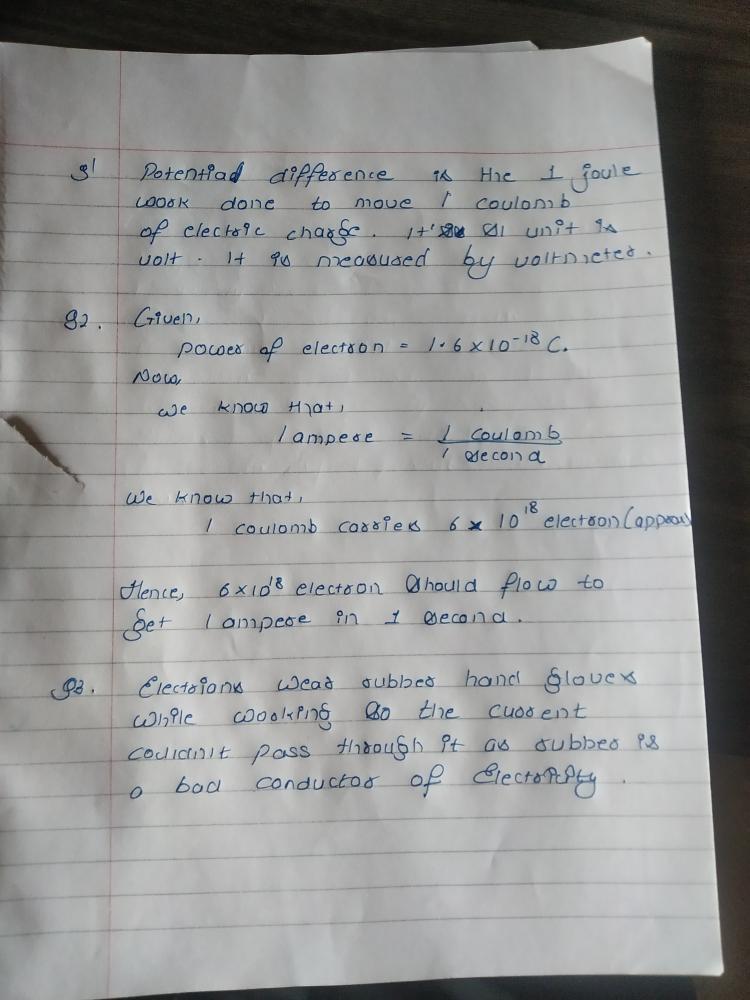 g1 Potential difference is the 1 joule
work done to move 1 coulomb
of electric charge. It's SI unit is
volt. It is measured by voltmeter.
g2. Given,
power of electron = 1.6 x 10⁻¹⁸ C.
Now,
we know that,
1 ampere = 1 coulomb
1 second
We know that,
1 coulomb carries 6 x 10¹⁸ electron (approx)
Hence, 6x10¹⁸ electron should flow to
get 1 ampere in 1 second.
g3. Electrions wear rubber hand gloves
while working so the current
could'nt pass through it as rubber is
a bad conductor of